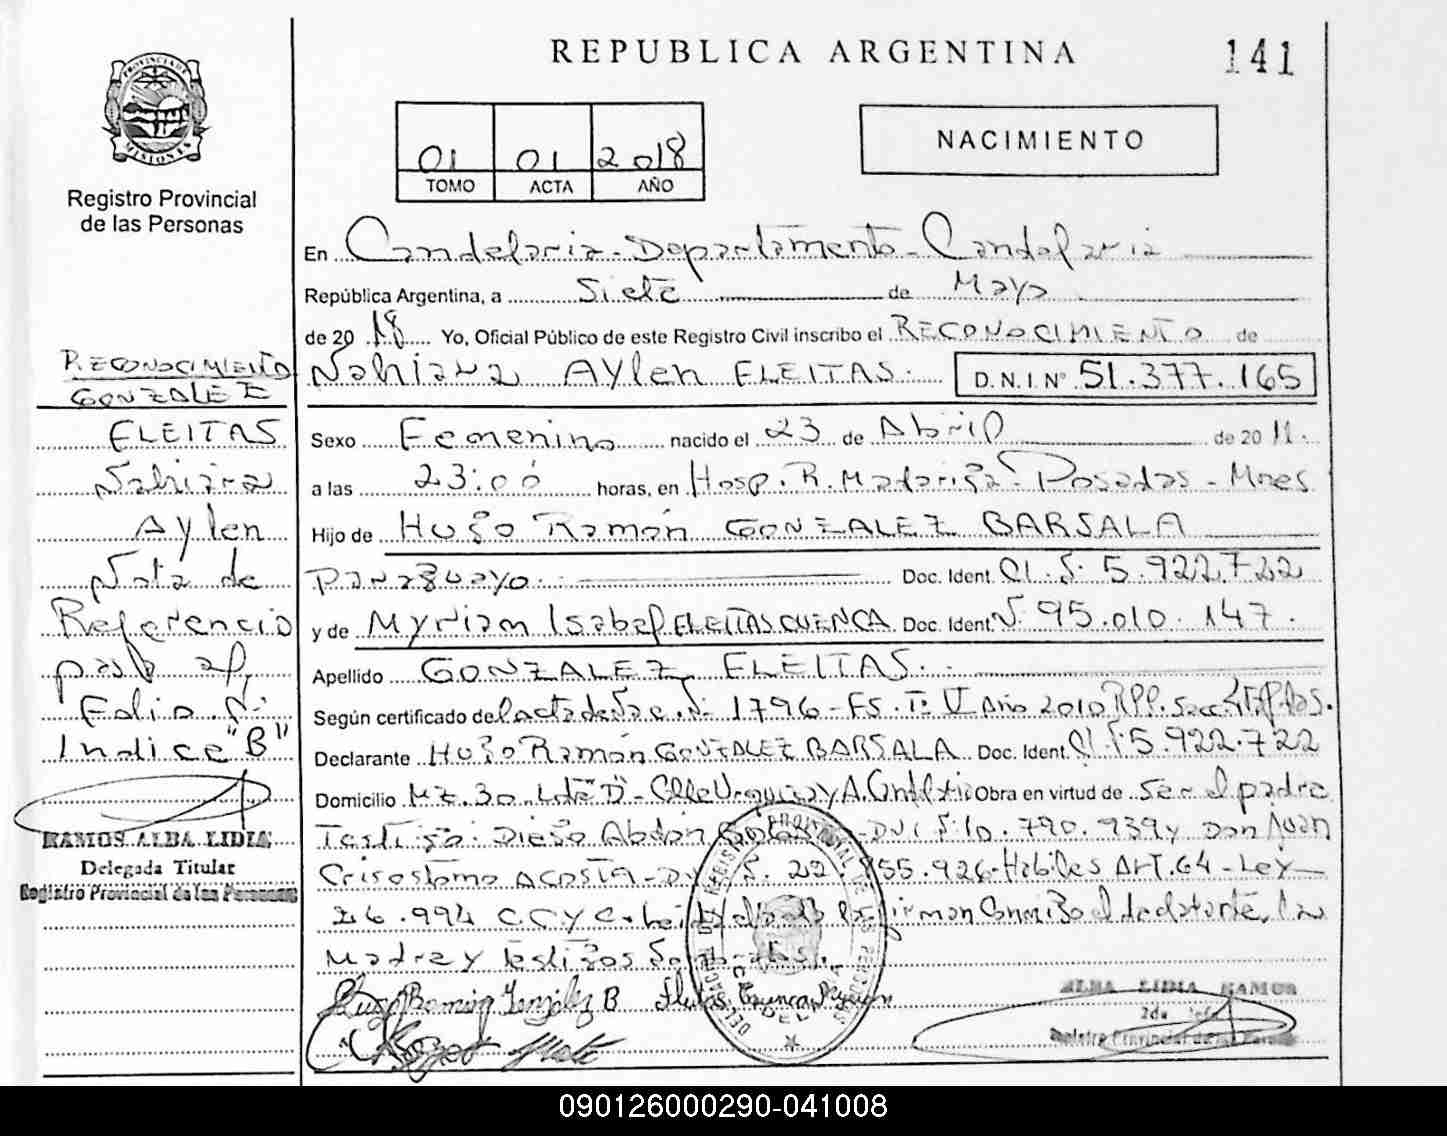 REPUBLICA ARGENTINA
141
PROVINCIA DE
MISIONES
Registro Provincial
de las Personas
01 01 2018
TOMO ACTA AÑO
NACIMIENTO
En Candelaria - Departamento - Candelaria
República Argentina, a Siete de Mayo
de 2018 Yo, Oficial Público de este Registro Civil inscribo el RECONOCIMIENTO de
Nahiara Aylen ELEITAS. D.N.I Nº 51.377.165
Sexo Femenino nacido el 23 de Abril de 2011.
a las 23:00 horas, en Hosp. R. Madariaga - Posadas - Mnes
Hijo de Hugo Ramón GONZALEZ BARSALA
Paraguayo. Doc. Ident. CI. Nº 5.922.722
y de Myriam Isabel ELEITAS CUENCA Doc. Ident. Nº 95.010.147.
Apellido GONZALEZ ELEITAS.
Según certificado de acta de Nac. Nº 1796 - Fs. Tº VI Año 2010 RPP.
Declarante Hugo Ramón GONZALEZ BARSALA Doc. Ident. CI Nº 5.922.722
Domicilio Mz. 30 Lote D - Calle Urquiza y A. Obra en virtud de Ser el padre
Testigo: Diego Abdón DNI Nº 10.790.939 y Don Juan
Crisostomo ACOSTA - DNI Nº 22.955.926 - Hábiles ART. 64 - Ley
26.994 C.C y C. Leída el acta la firman Conmigo el declarante, la
Madre y Testigos
RECONOCIMIENTO
GONZALEZ
ELEITAS
Nahiara
Aylen
Nota de
Referencia
paso al
Folio Nº
Indice "B"
RAMOS ALBA LIDIA
Delegada Titular
Registro Provincial de las Personas
REGISTRO PROVINCIAL DE LAS PERSONAS
Hugo Ramon Gonzalez B Eleitas Cuenca Myriam
ALBA LIDIA RAMOS
Registro Provincial de las Personas
090126000290-041008